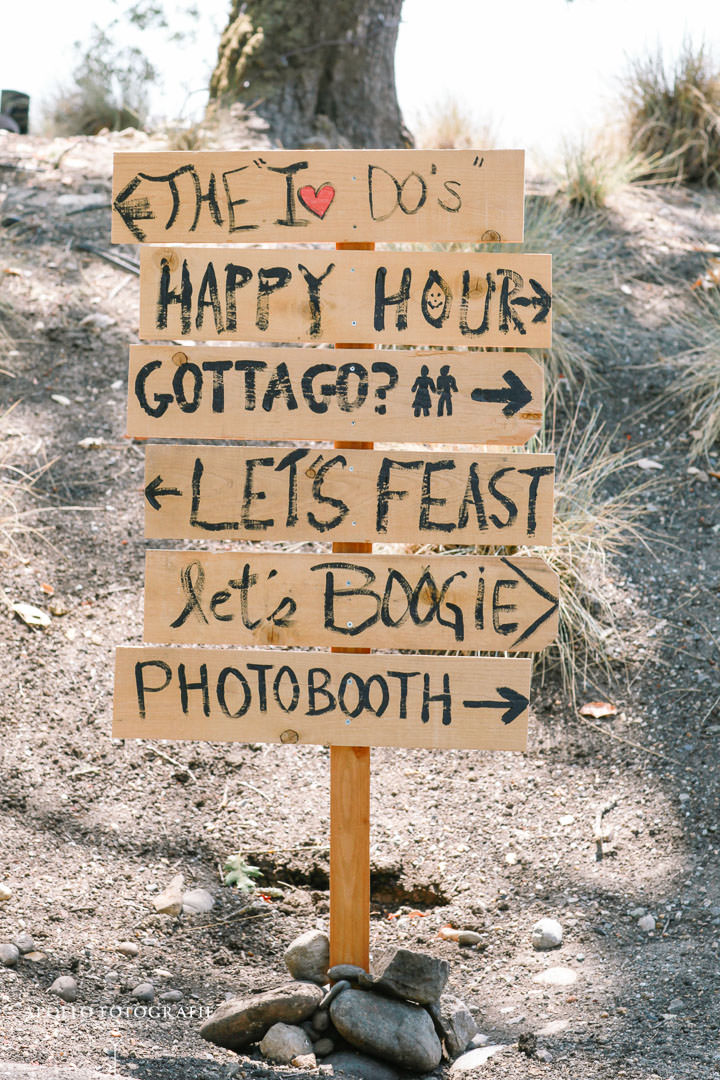 THE "I ❤ DO's"
HAPPY HOUR
GOTTAGO?
LET'S FEAST
let's BOOGiE
PHOTOBOOTH
APOLLO FOTOGRAFIE